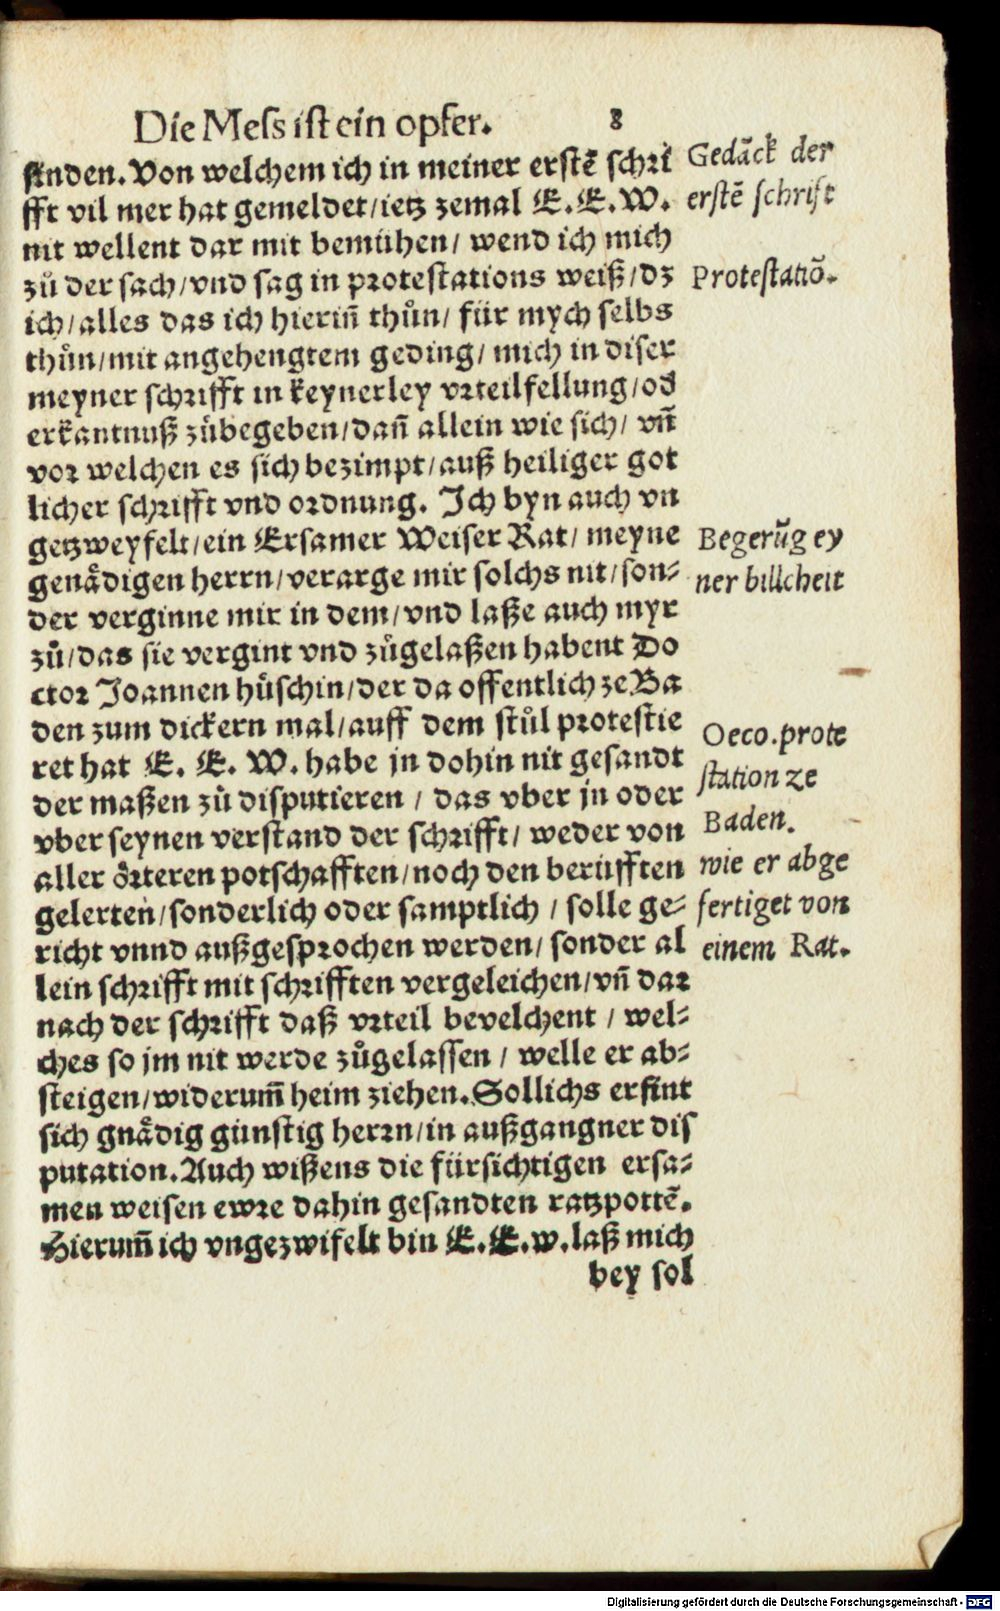 Die Mess ist ein opfer. 8
finden. Von welchem ich in meiner erstē schri
fft vil mer hat gemeldet/ietz zemal E.E.W.
nit wellent dar mit bemühen/ wend ich mich
zů der sach/vnd sag in protestations weiß/dz
ich/alles das ich hieriñ thůn/ für mych selbs
thůn/mit angehengtem geding/ mich in diser
meyner schrifft in keynerley vrteilfellung/od
erkantnuß zůbegeben/dañ allein wie sich/ vñ
vor welchen es sich bezimpt/auß heiliger got
licher schrifft vnd ordnung. Ich byn auch vn
getzweyfelt/ein Ersamer Weiser Rat/ meyne
genådigen herrn/verarge mir solchs nit/son-
der verginne mir in dem/vnd laße auch myr
zů/das sie vergint vnd zůgelaßen habent Do
ctor Joannen hůschin/der da offentlich ze Ba
den zum dickern mal/auff dem stůl protestie
ret hat E. E. W. habe jn dohin nit gesandt
der maßen zů disputieren / das vber jn oder
vber seynen verstand der schrifft/ weder von
aller örteren potschafften/noch den berüfften
gelerten/sonderlich oder samptlich / solle ge-
richt vnnd außgesprochen werden/ sonder al
lein schrifft mit schrifften vergeleichen/vñ dar
nach der schrifft daß vrteil bevelchent / wel-
ches so jm nit werde zůgelassen / welle er ab-
steigen/widerum̃ heim ziehen. Sollichs erfint
sich gnådig günstig herrn/in außgangner dis
putation. Auch wißens die fürsichtigen ersa-
men weisen ewre dahin gesandten ratzpottē.
Hierum̃ ich vngezwifelt bin E.E.w.laß mich
bey sol
Gedāck der
erstē schrift
Protestatiō.
Begerūg ey
ner billcheit
Oeco.prote
station ze
Baden.
wie er abge
fertiget von
einem Rat.
Digitalisierung gefördert durch die Deutsche Forschungsgemeinschaft - DFG